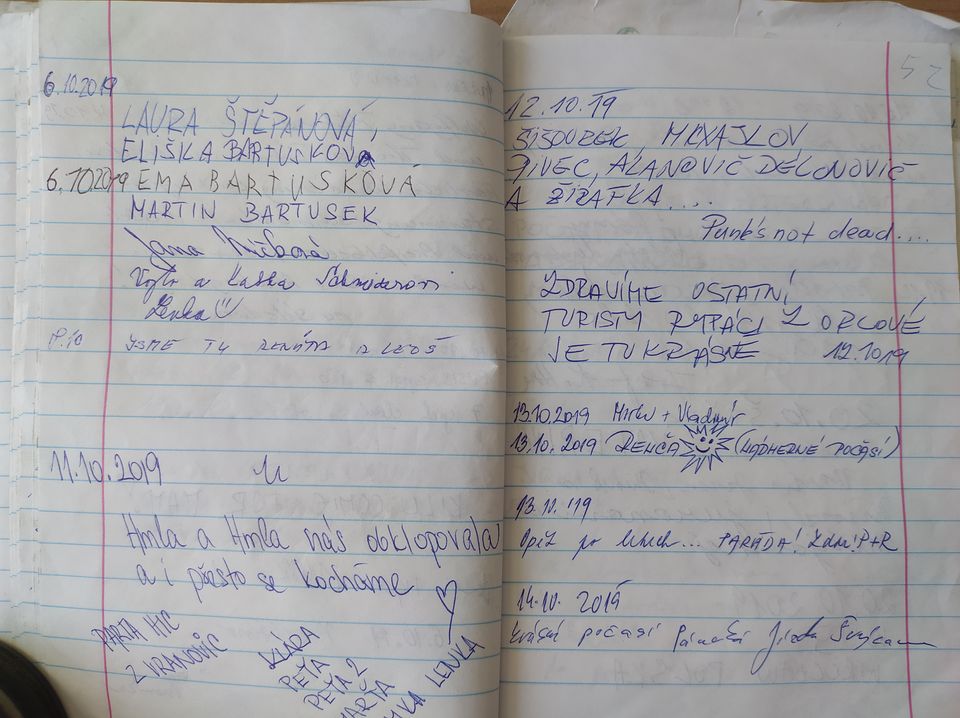 6.10.2019
LAURA ŠTĚPÁNOVÁ,
ELIŠKA BARTUSKOVA
6.10 2019 EMA BARTUSKOVÁ
MARTIN BARTUSEK
Jana
a Katka
Lenka
JSME TU RENÁTA A LEOŠ
11.10.2019
Hmla a Hmla nás obklopovala
a i přesto se kocháme
PARTA HIC
Z VRANOVIC
KLÁRA
PEŤA
PEŤA 2
MARTA
LENKA
52
12.10.19
MICHAJLOV,
PIVEC, ALANOVIČ DELONOVIČ
A ŽIRAFKA....
Punk's not dead....
ZDRAVÍME OSTATNÍ
TURISTY Z ORLOVÉ
JE TU KRÁSNĚ 12.10 19
13.10.2019 Mirka + Vladimír
13.10.2019 RENČA (NÁDHERNÉ POČASÍ)
13.10. '19
Opět po letech... PARÁDA! P+R
14.10. 2019
krásné počasí